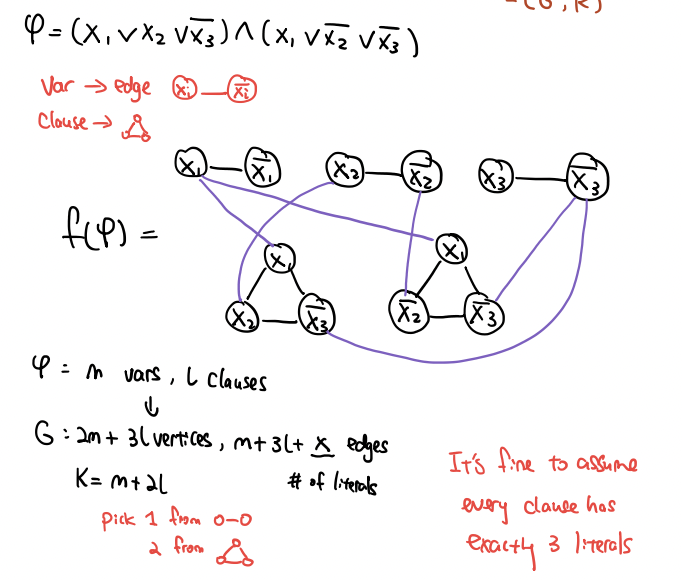 φ = (x₁ ∨ x₂ ∨ x̅₃) ∧ (x₁ ∨ x̅₂ ∨ x̅₃)
Var → edge xᵢ x̅ᵢ
Clause →
x₁ x̅₁ x₂ x̅₂ x₃ x̅₃
f(φ) =
x₁ x₁
x₂ x̅₃ x̅₂ x̅₃
φ = m vars, l clauses
↓
G : 2m + 3l vertices, m + 3l + x edges
K = m + 2l # of literals
pick 1 from o-o
2 from
It's fine to assume
every clause has
exactly 3 literals